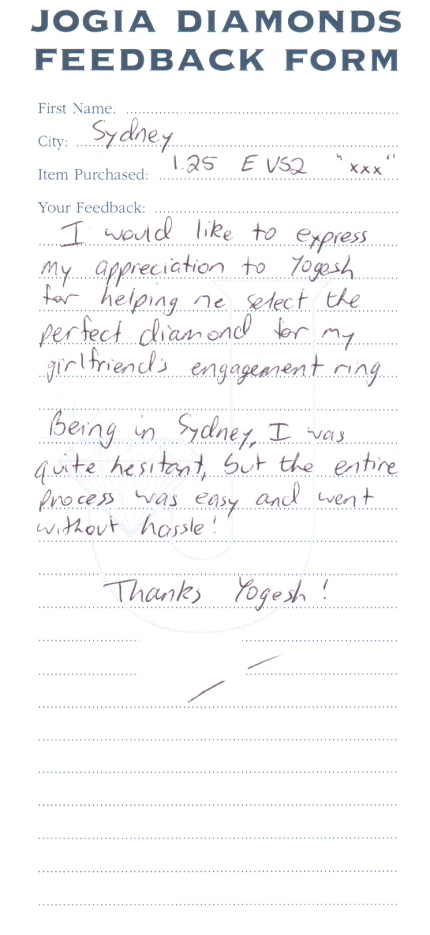 JOGIA DIAMONDS
FEEDBACK FORM
First Name:
City: Sydney
Item Purchased: 1.25 E VS2 "xxx"
Your Feedback:
I would like to express
my appreciation to Yogesh
for helping me select the
perfect diamond for my
girlfriend's engagement ring
Being in Sydney, I was
quite hesitant, but the entire
process was easy and went
without hassle!
Thanks Yogesh!